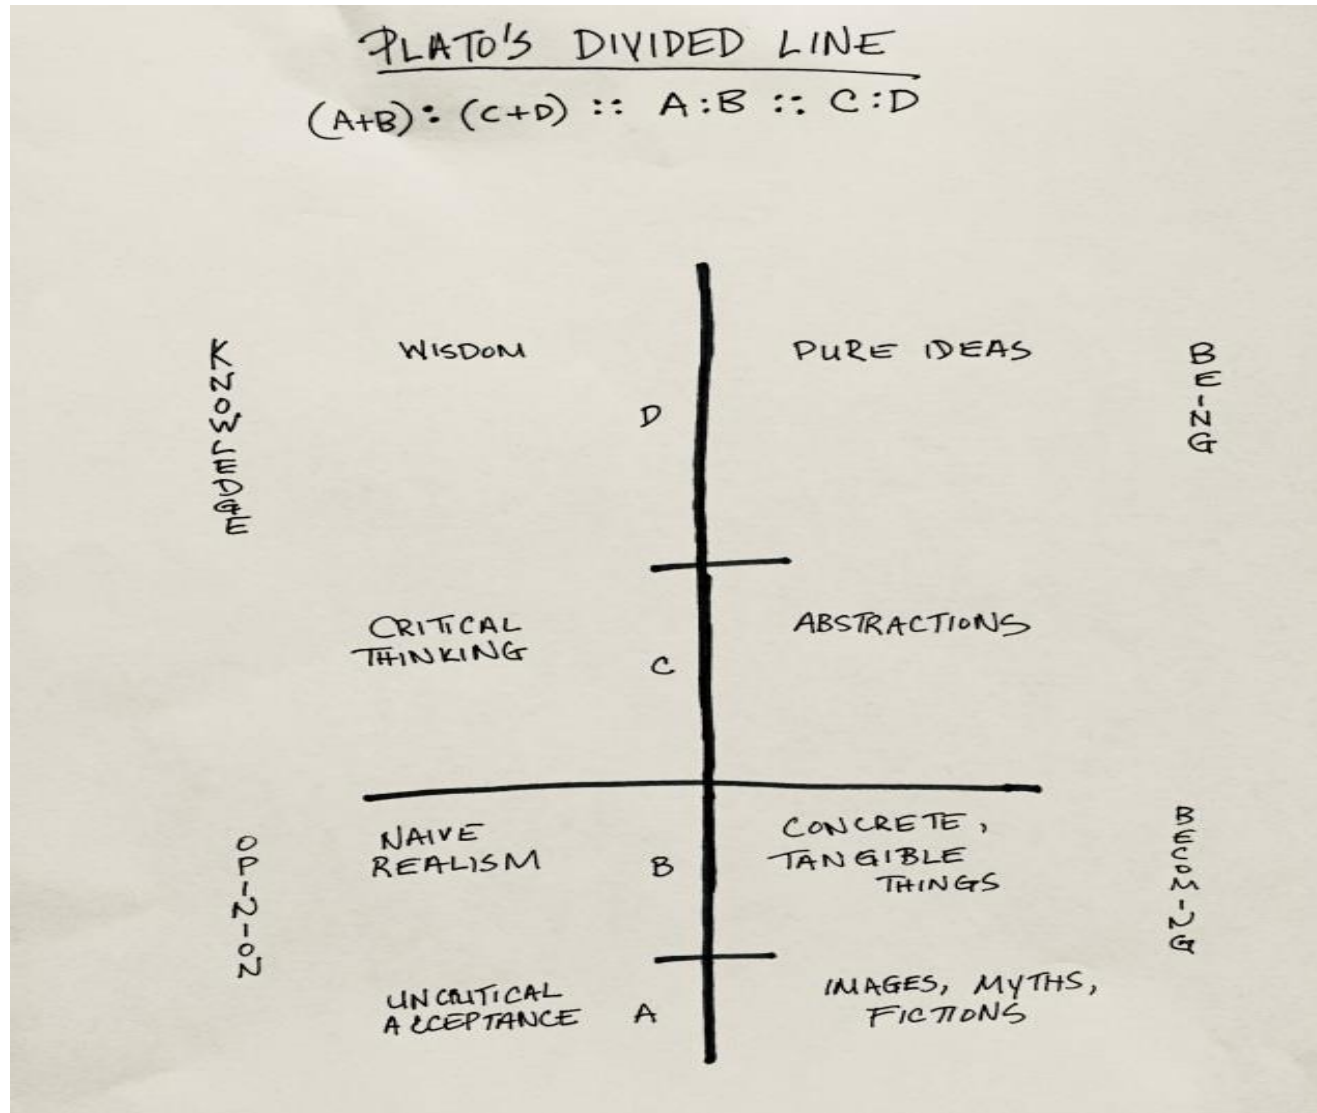 PLATO'S DIVIDED LINE
(A+B) : (C+D) :: A:B :: C:D
KNOWLEDGE
WISDOM
D
PURE IDEAS
BEING
CRITICAL
THINKING
C
ABSTRACTIONS
OPINION
NAIVE
REALISM
B
CONCRETE,
TANGIBLE
THINGS
BECOMING
UNCRITICAL
ACCEPTANCE
A
IMAGES, MYTHS,
FICTIONS